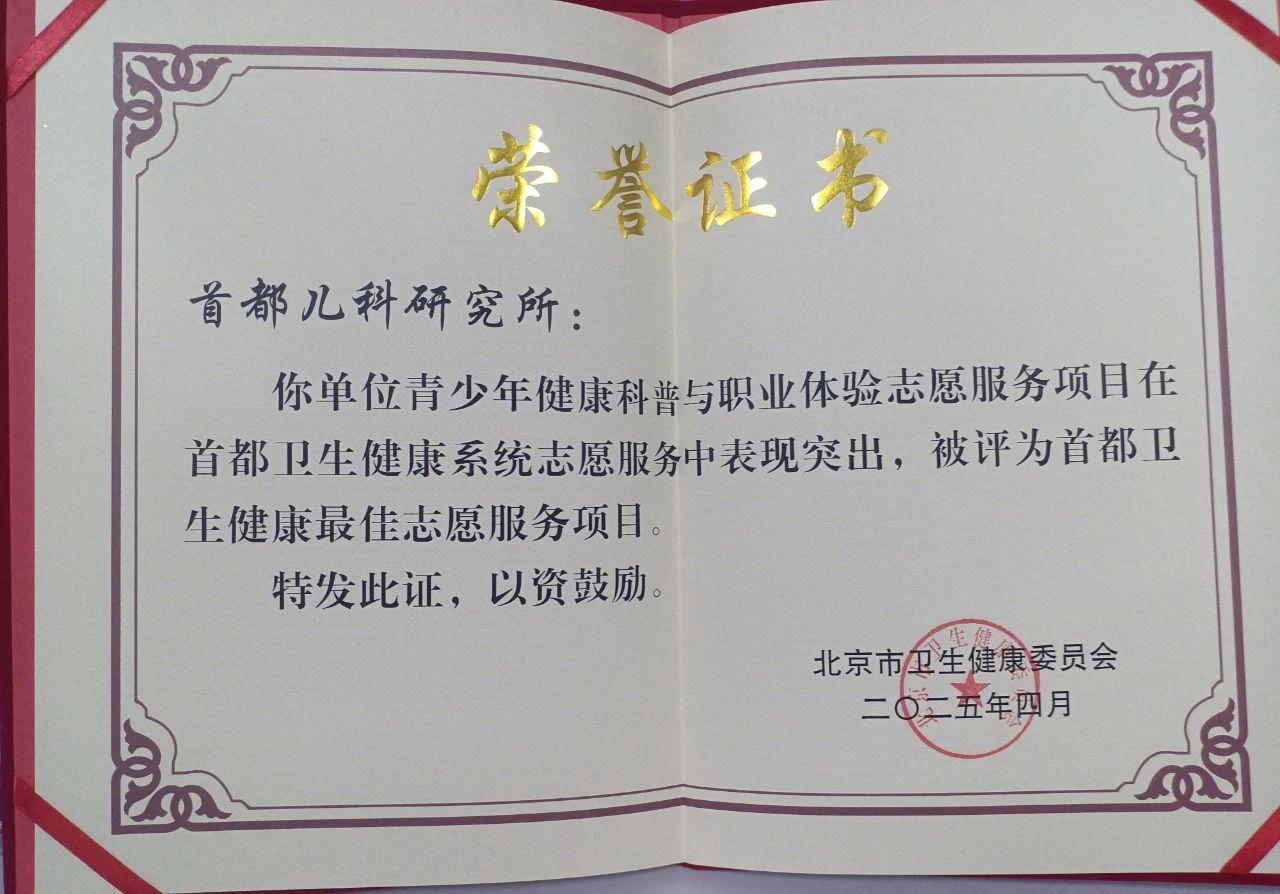 荣誉证书
首都儿科研究所：
你单位青少年健康科普与职业体验志愿服务项目在
首都卫生健康系统志愿服务中表现突出，被评为首都卫
生健康最佳志愿服务项目。
特发此证，以资鼓励。
北京市卫生健康委员会
二〇二五年四月
北京市卫生健康委员会